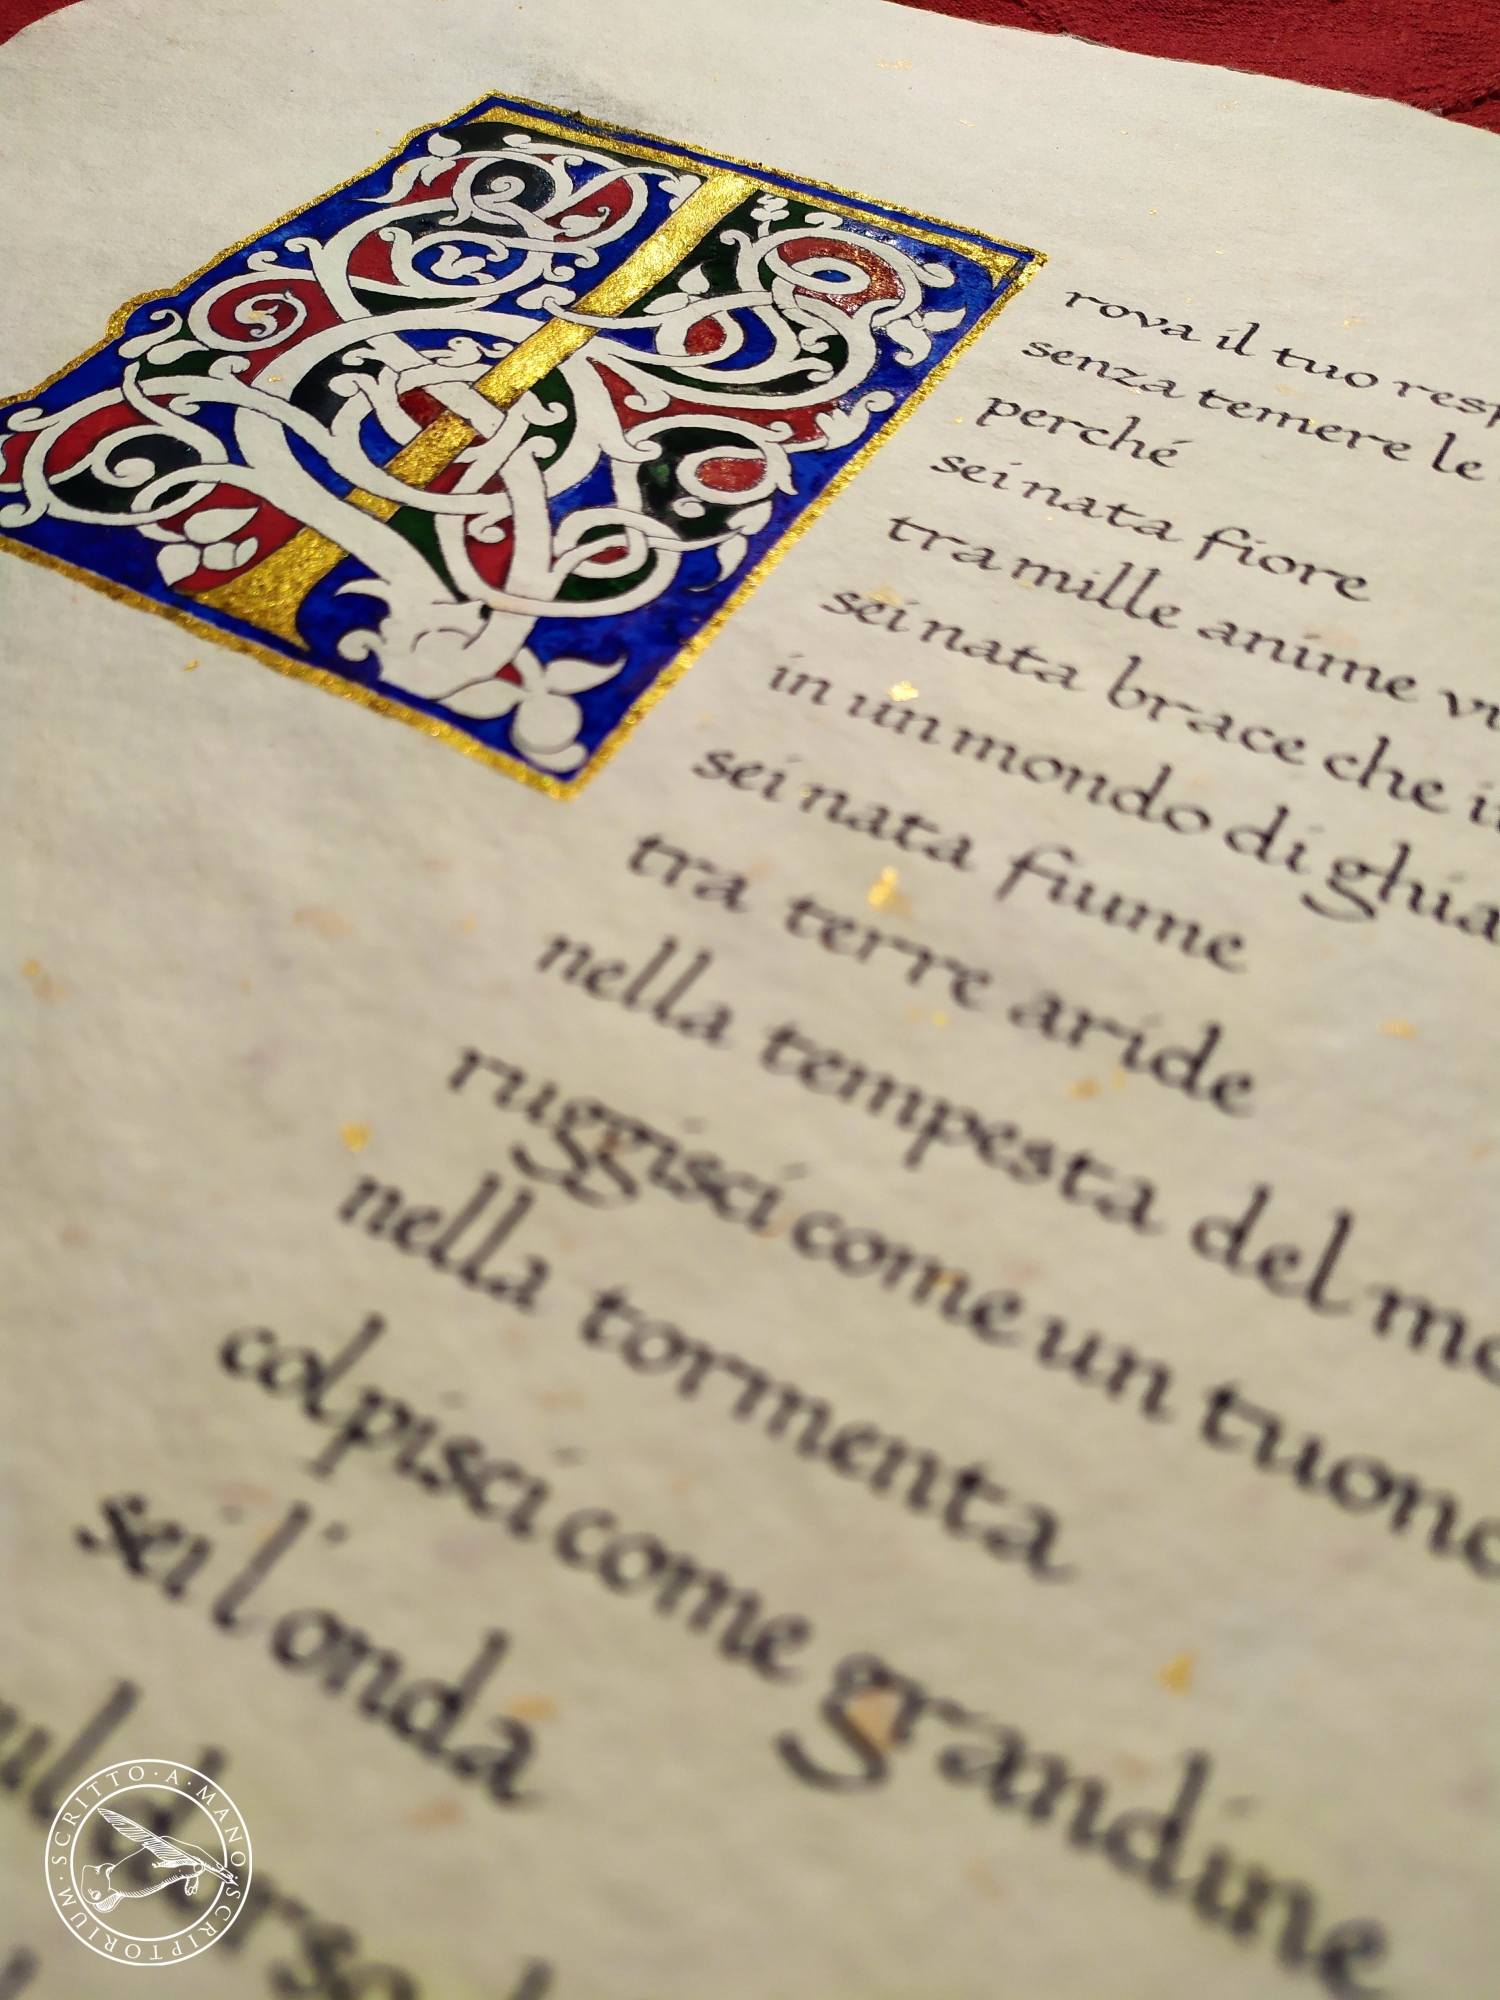 T
rova il tuo resp
senza temere le
perché
sei nata fiore
tra mille anime vu
sei nata brace che in
in un mondo di ghia
sei nata fiume
tra terre aride
nella tempesta del
ruggisci come un tuono
nella tormenta
colpisci come grandine
sei l'onda
SCRITTO · A · MANO · SCRIPTORIUM ·